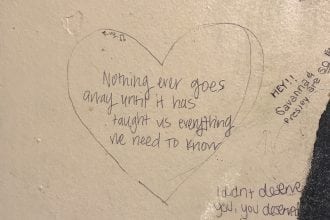 Nothing ever goes
array until it has
taught us everything
we need to know
HEY!!
Savanna &
Presley are SO
I didn't deserve
you, you deserve